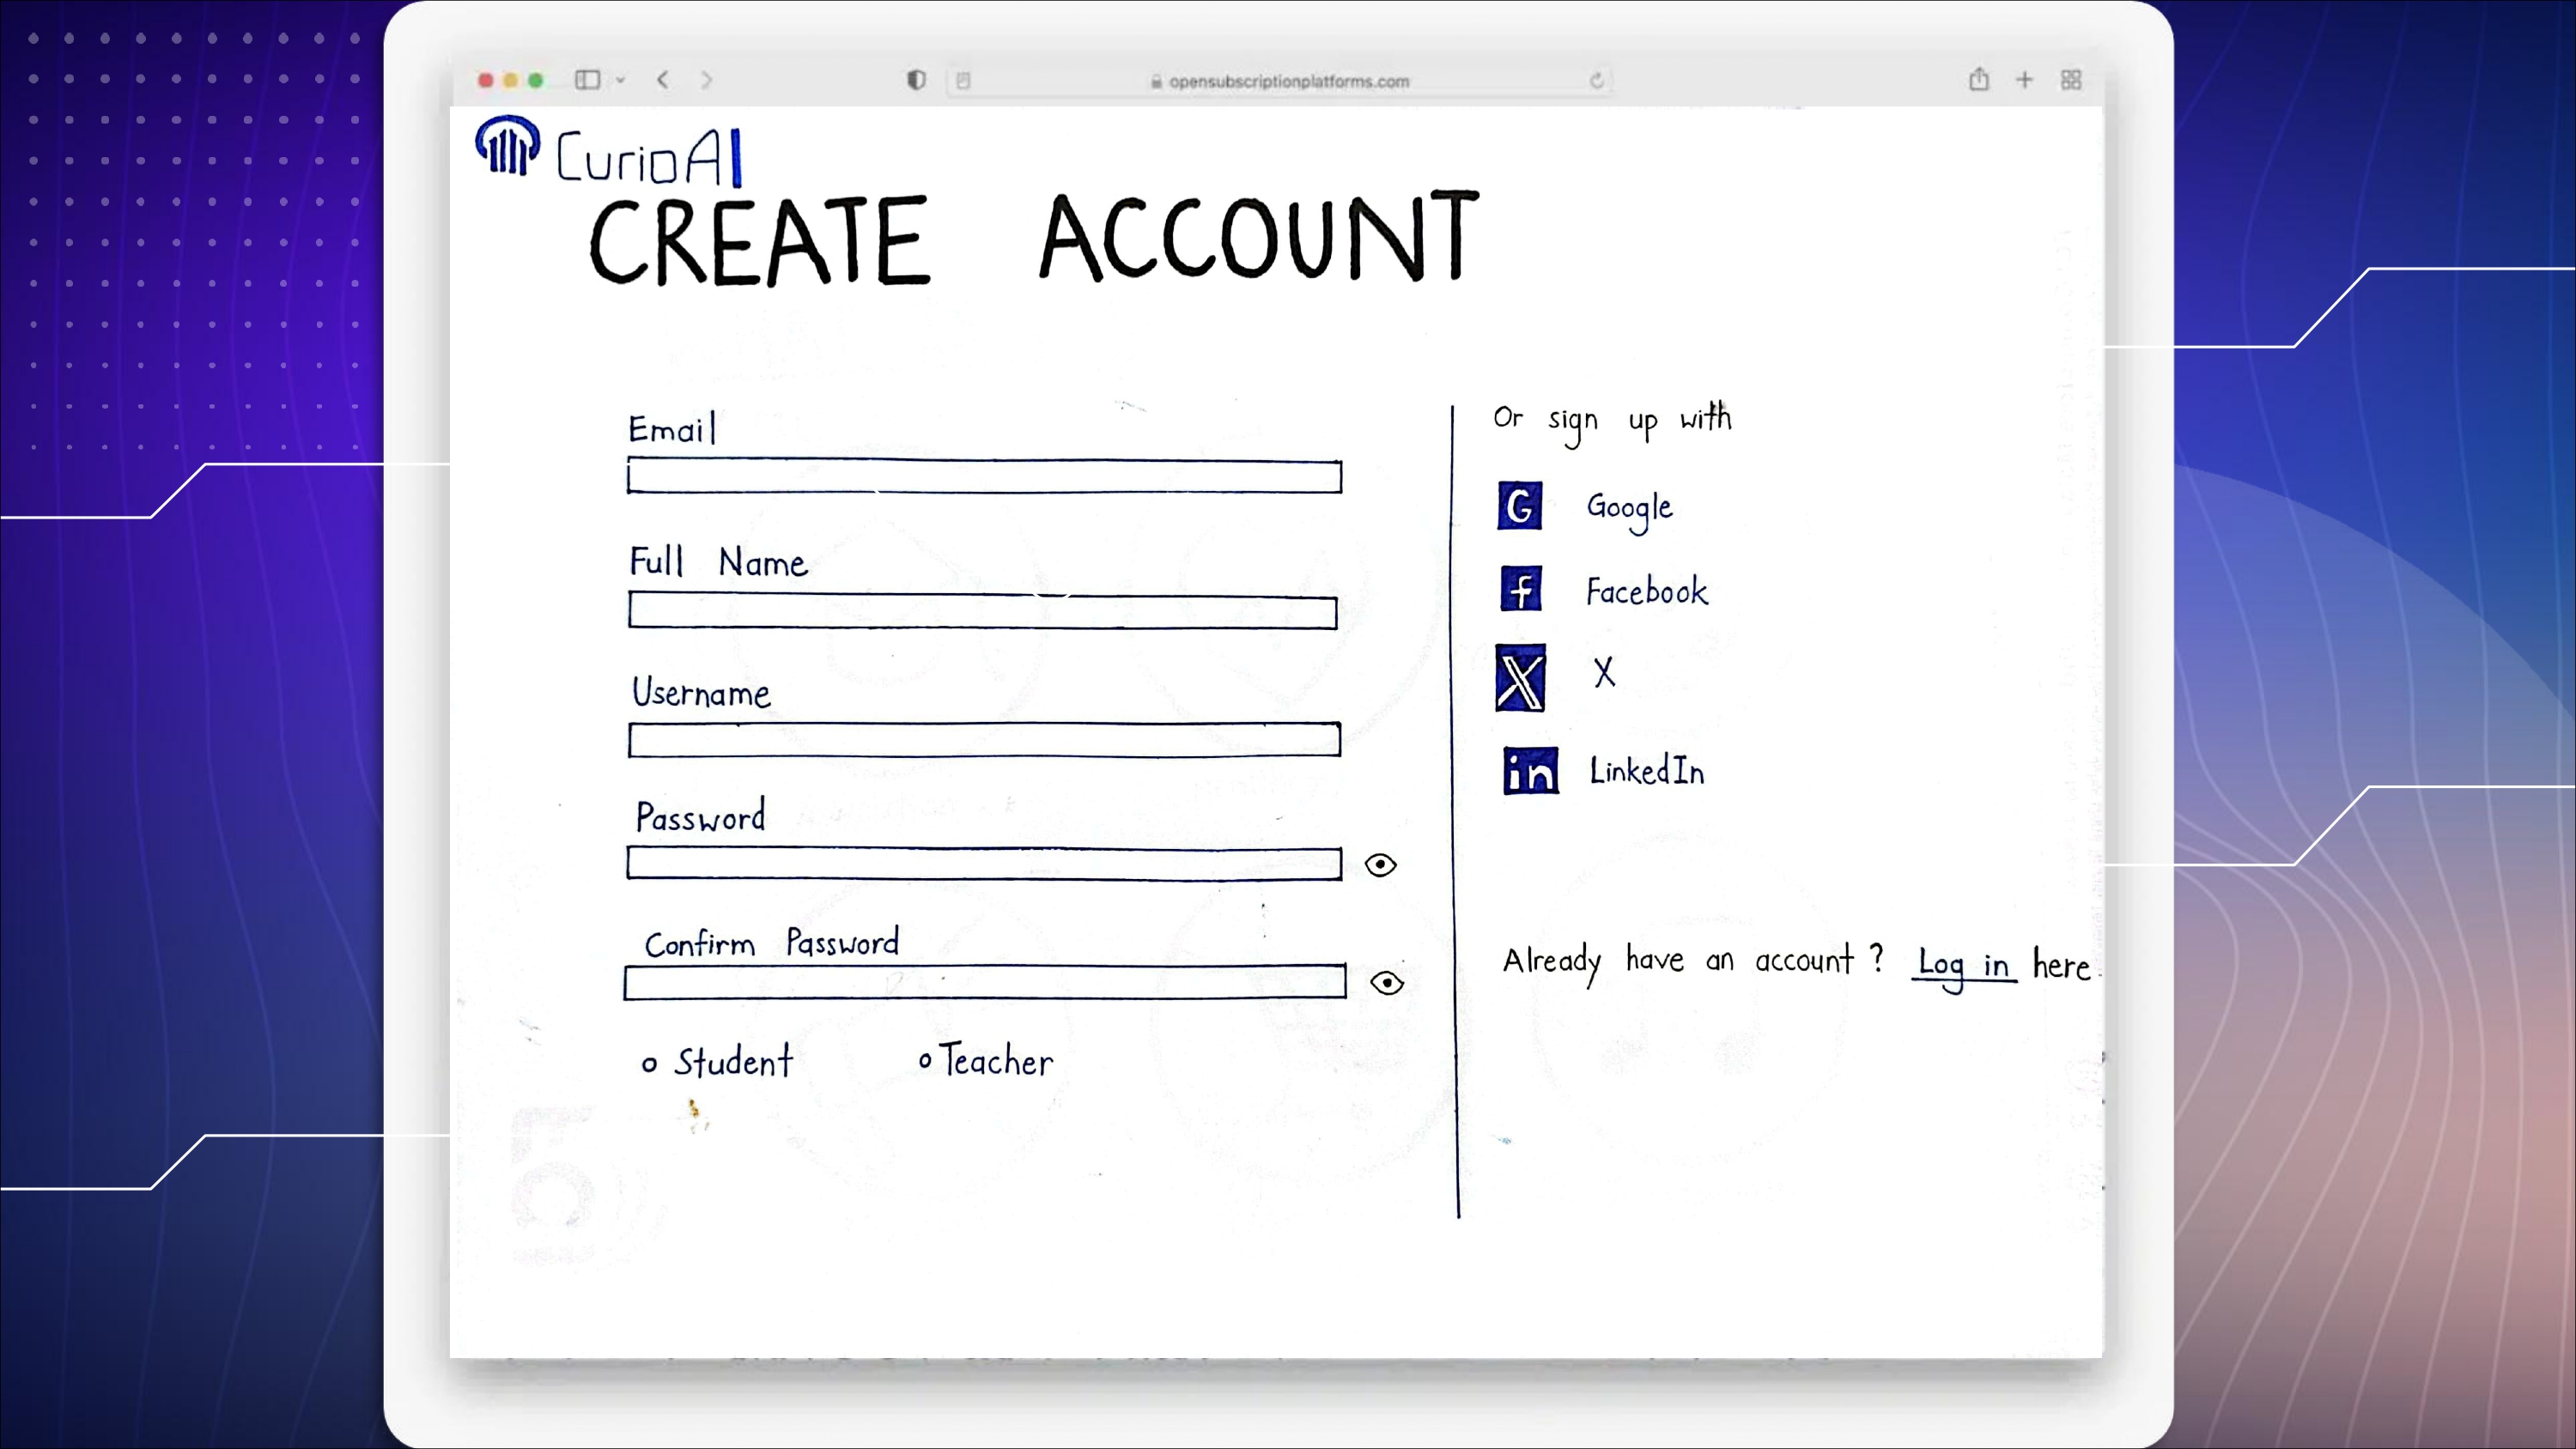 opensubscriptionplatforms.com
CurioAI
CREATE ACCOUNT
Email
Full Name
Username
Password
Confirm Password
Student
Teacher
Or sign up with
G Google
f Facebook
X X
in LinkedIn
Already have an account? Log in here